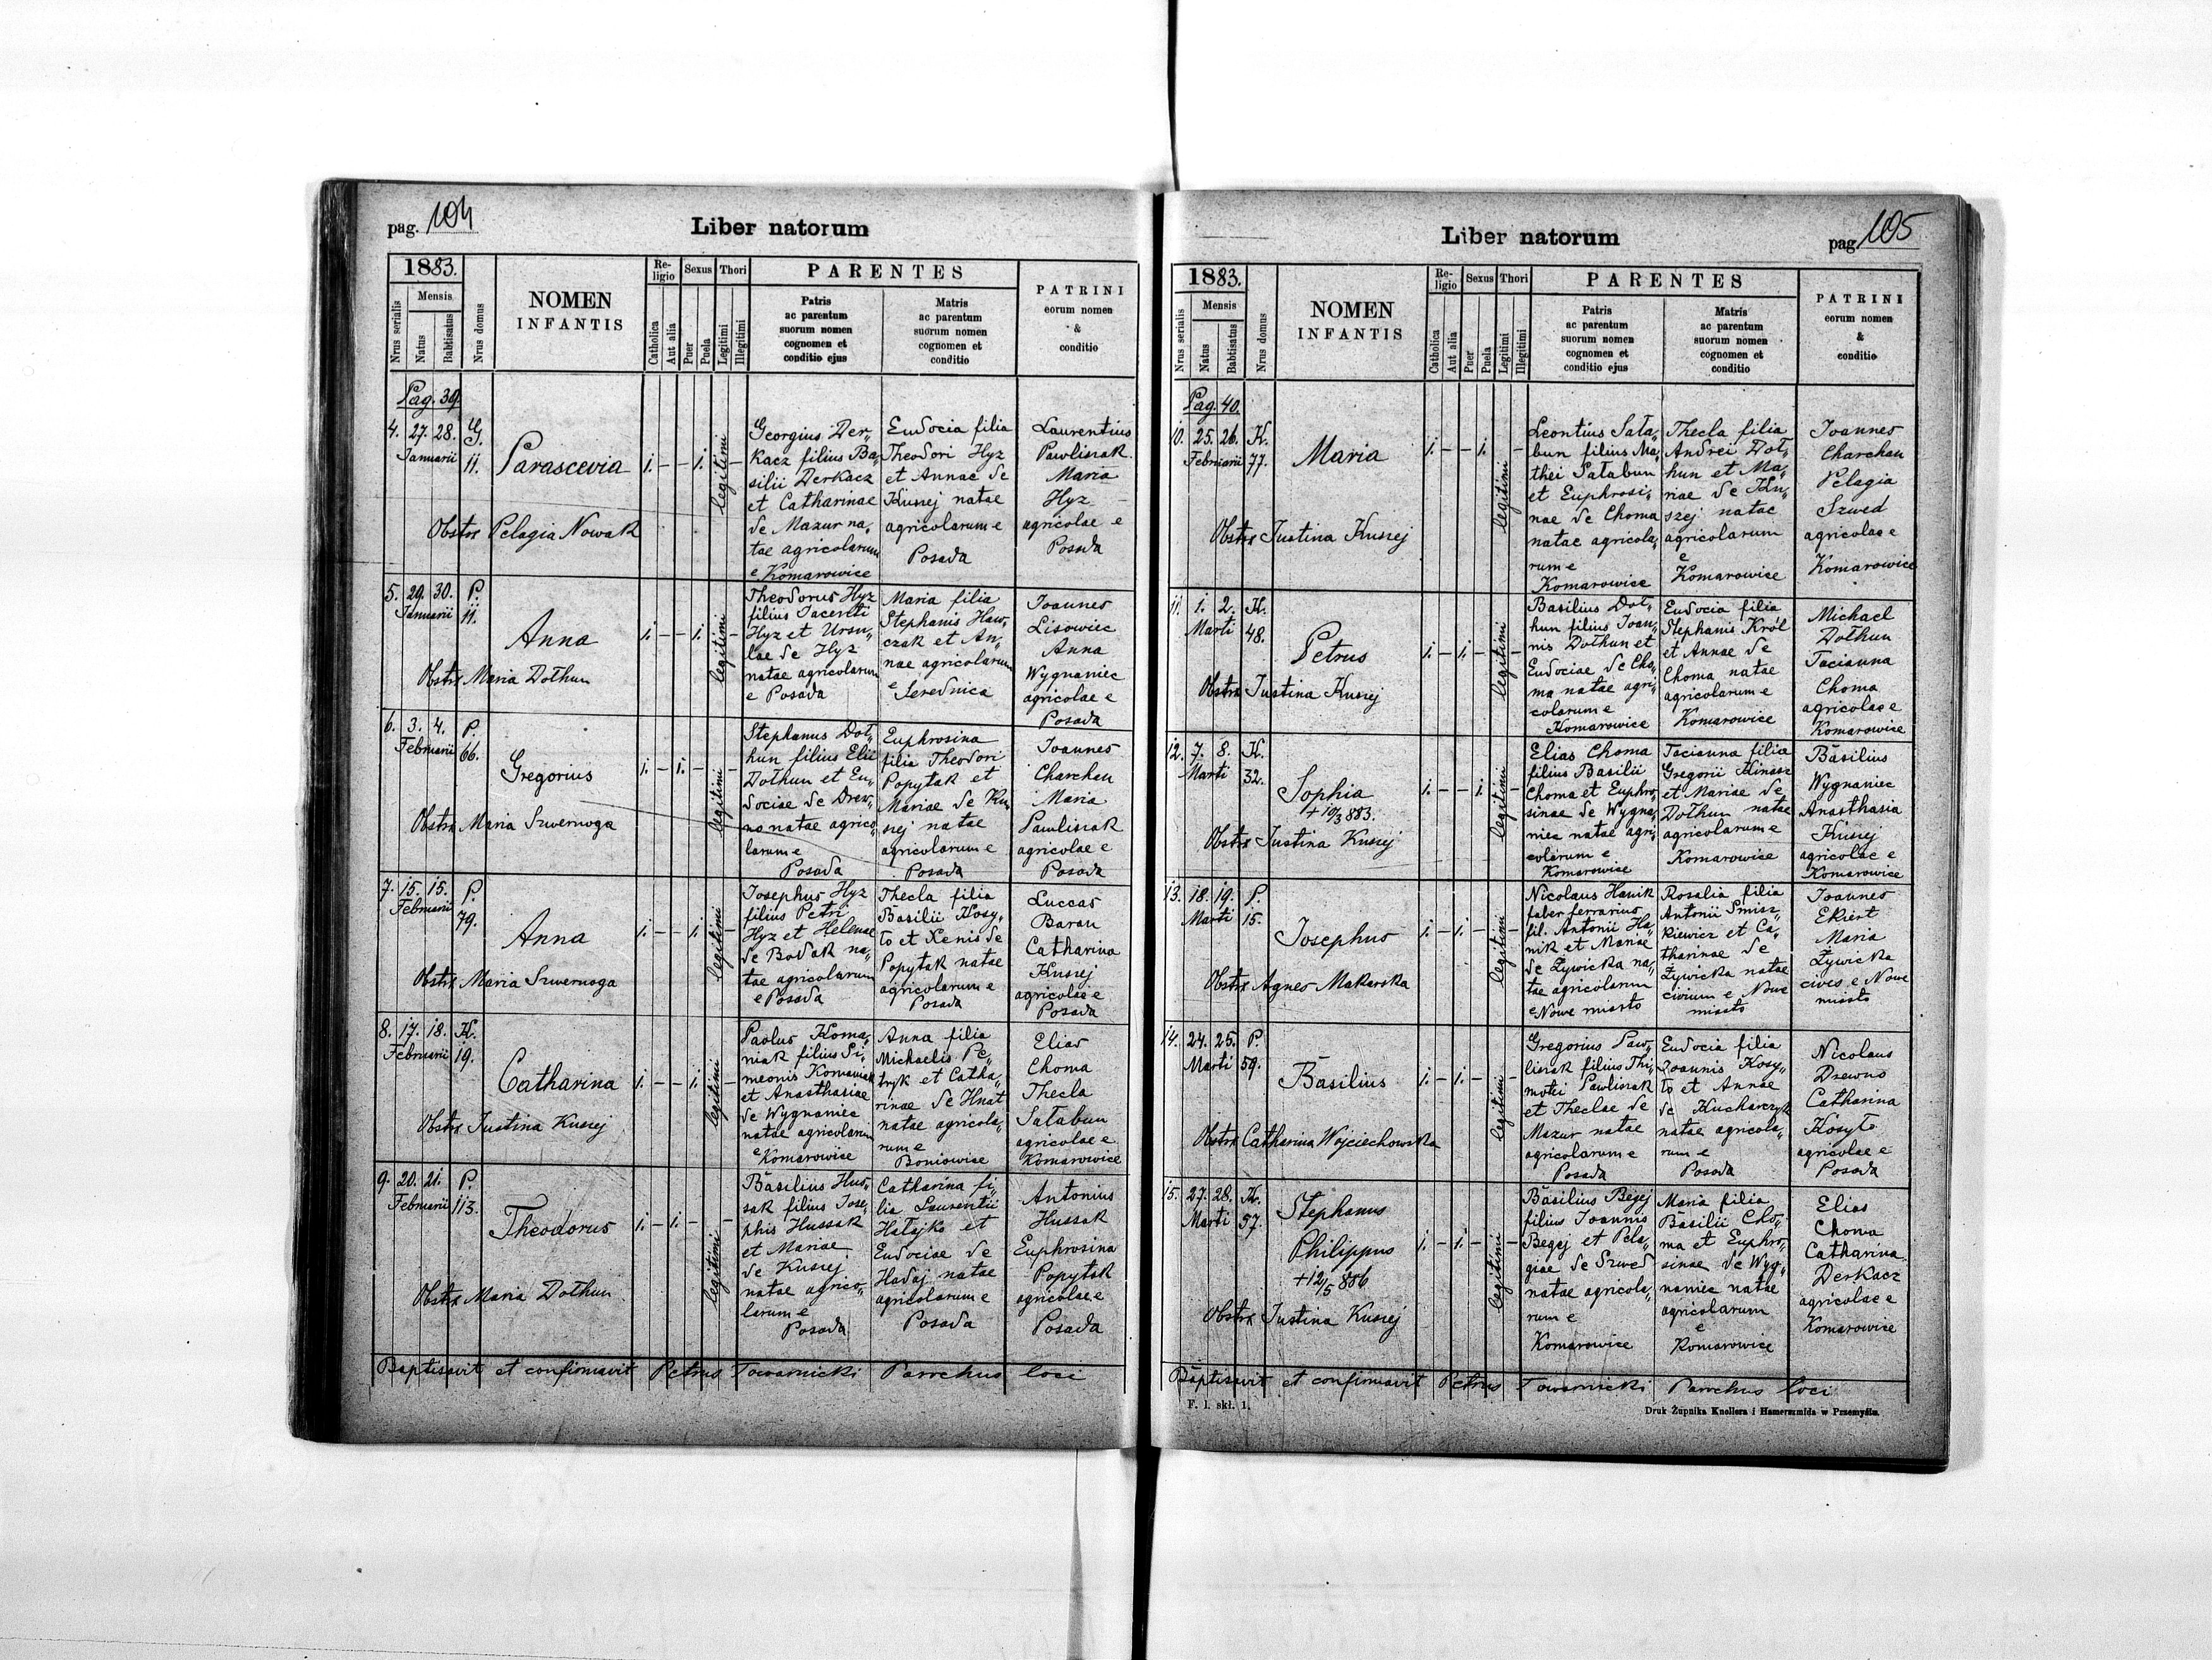 pag. 104
Liber natorum
1883.
Nrus serialis
Mensis
Natus
Babtisatus
Nrus domus
NOMEN
INFANTIS
Re-
ligio
Catholica
Aut alia
Sexus
Puer
Puela
Thori
Legitimi
Illegitimi
PARENTES
Patris
ac parentum
suorum nomen
cognomen et
conditio ejus
Matris
ac parentum
suorum nomen
cognomen et
conditio
PATRINI
eorum nomen
&
conditio
Pag. 39.
4. 27. 28. G.
Januarii 11.
Parascevia
1. – – 1. legitimi –
Obstrx Pelagia Nowak
Georgius Der„
kacz filius Ba„
silii Derkacz
et Catharinae
de Mazur na„
tae agricolarum
e Komarowice
Eudocia filia
Theodori Hyz
et Annae de
Kuszej natae
agricolarum e
Posada
Laurentius
Pawliszak
Maria
Hyz
agricolae e
Posada
5. 29. 30. P.
Januarii 11.
Anna
1. – – 1. legitimi –
Obstrx Maria Dothun
Theodorus Hyz
filius Jacenti
Hyz et Ursu„
lae de Hyz
natae agricolarum
e Posada
Maria filia
Stephanis Haw„
czak et An„
nae agricolarum
e Serednica
Joannes
Lisowiec
Anna
Wygnaniec
agricolae e
Posada
6. 3. 4. P.
Februarii 66.
Gregorius
1. – 1. – legitimi –
Obstrx Maria Szwernoga
Stephanus Dot„
hun filius Elii
Dothun et Eu„
dociae de Drew„
no natae agrico„
larum e
Posada
Euphrosina
filia Theodori
Popytak et
Mariae de Ku„
szej natae
agricolarum e
Posada
Joannes
Charchan
Maria
Pawliszak
agricolae e
Posada
7. 15. 15. P.
Februarii 79.
Anna
1. – – 1. legitimi –
Obstrx Maria Szwernoga
Josephus Hyz
filius Petri
Hyz et Helenae
de Bodak na„
tae agricolarum
e Posada
Thecla filia
Basilii Kosy„
to et Xenis de
Popytak natae
agricolarum e
Posada
Luccas
Baran
Catharina
Kuszej
agricolae e
Posada
8. 17. 18. K.
Februarii 19.
Catharina
1. – – 1. legitimi –
Obstrx Justina Kuszej
Paolus Koma„
niak filius Si„
meonis Komaniak
et Anasthasiae
de Wygnaniec
natae agricolarum
e Komarowice
Anna filia
Michaelis Pe„
tryk et Catha„
rinae de Hnat
natae agricola„
rum e
Boniowice
Elias
Choma
Thecla
Satabun
agricolae e
Komarowice
9. 20. 21. P.
Februarii 113.
Theodorus
1. – 1. – legitimi –
Obstrx Maria Dothun
Basilius Hus„
sak filius Jose„
phis Hussak
et Mariae
de Kuszej
natae agrico„
larum e
Posada
Catharina fi„
lia Laurentii
Hatajko et
Eudociae de
Hadaj natae
agricolarum e
Posada
Antonius
Hussak
Euphrosina
Popytak
agricolae e
Posada
Baptisavit et confirmavit Petrus Towarnicki Parrchus loci
Liber natorum
pag. 105
1883.
Nrus serialis
Mensis
Natus
Babtisatus
Nrus domus
NOMEN
INFANTIS
Re-
ligio
Catholica
Aut alia
Sexus
Puer
Puela
Thori
Legitimi
Illegitimi
PARENTES
Patris
ac parentum
suorum nomen
cognomen et
conditio ejus
Matris
ac parentum
suorum nomen
cognomen et
conditio
PATRINI
eorum nomen
&
conditio
Pag. 40.
10. 25. 26. K.
Februarii 77.
Maria
1. – – 1. legitimi –
Obstrx Justina Kuszej
Leontius Sata„
bun filius Ma„
thei Satabun
et Euphrosi„
nae de Choma
natae agricola„
rum e
Komarowice
Thecla filia
Andrei Dot„
hun et Ma„
riae de Ku„
szej natae
agricolarum
e
Komarowice
Joannes
Charchan
Pelagia
Szwed
agricolae e
Komarowice
11. 1. 2. K.
Marti 48.
Petrus
1. – 1. – legitimi –
Obstrx Justina Kuszej
Basilius Dot„
hun filius Joan„
nis Dothun et
Eudociae de Cho„
ma natae agri„
colarum e
Komarowice
Eudocia filia
Stephanis Król
et Annae de
Choma natae
agricolarum e
Komarowice
Michael
Dothun
Tacianna
Choma
agricolae e
Komarowice
12. 7. 8. K.
Marti 32.
Sophia
+ 19/3 883.
1. – – 1. legitimi –
Obstrx Justina Kuszej
Elias Choma
filius Basilii
Choma et Euphro„
sinae de Wygna„
niec natae agri„
colarum e
Komarowice
Tacianna filia
Gregorii Kinasz
et Mariae de
Dothun natae
agricolarum e
Komarowice
Basilius
Wygnaniec
Anasthasia
Kuszej
agricolae e
Komarowice
13. 18. 19. P.
Marti 15.
Josephus
1. – 1. – legitimi –
Obstrx Agnes Makarska
Nicolaus Hanik
faber ferrarius
fil. Antonii Ha„
nik et Mariae
de Żywicka na„
tae agricolarum
e Nowe miasto
Rosalia filia
Antonii Smisz„
kiewicz et Ca„
tharinae de
Żywicka natae
civium e Nowe
miasto
Joannes
Ekiert
Maria
Żywicka
cives e Nowe
miasto
14. 24. 25. P.
Marti 59.
Basilius
1. – 1. – legitimi –
Obstrx Catharina Wojciechowska
Gregorius Paw„
liszak filius Thi„
motei Pawliszak
et Theclae de
Mazur natae
agricolarum e
Posada
Eudocia filia
Joannis Kosy„
to et Annae
de Kucharczyk
natae agricola„
rum e
Posada
Nicolaus
Drewno
Catharina
Kosyto
agricolae e
Posada
15. 27. 28. K.
Marti 57.
Stephanus
Philippus
+ 12/5 886
1. – 1. – legitimi –
Obstrx Justina Kuszej
Basilius Begej
filius Joannis
Begej et Pela„
giae de Szwed
natae agricola„
rum e
Komarowice
Maria filia
Basilii Cho„
ma et Euphro„
sinae de Wyg„
naniec natae
agricolarum
e
Komarowice
Elias
Choma
Catharina
Derkacz
agricolae e
Komarowice
Baptisavit et confirmavit Petrus Towarnicki Parrchus loci
F. l. skł. 1.
Druk Żupnika Knollera i Hamerszmida w Przemyślu.